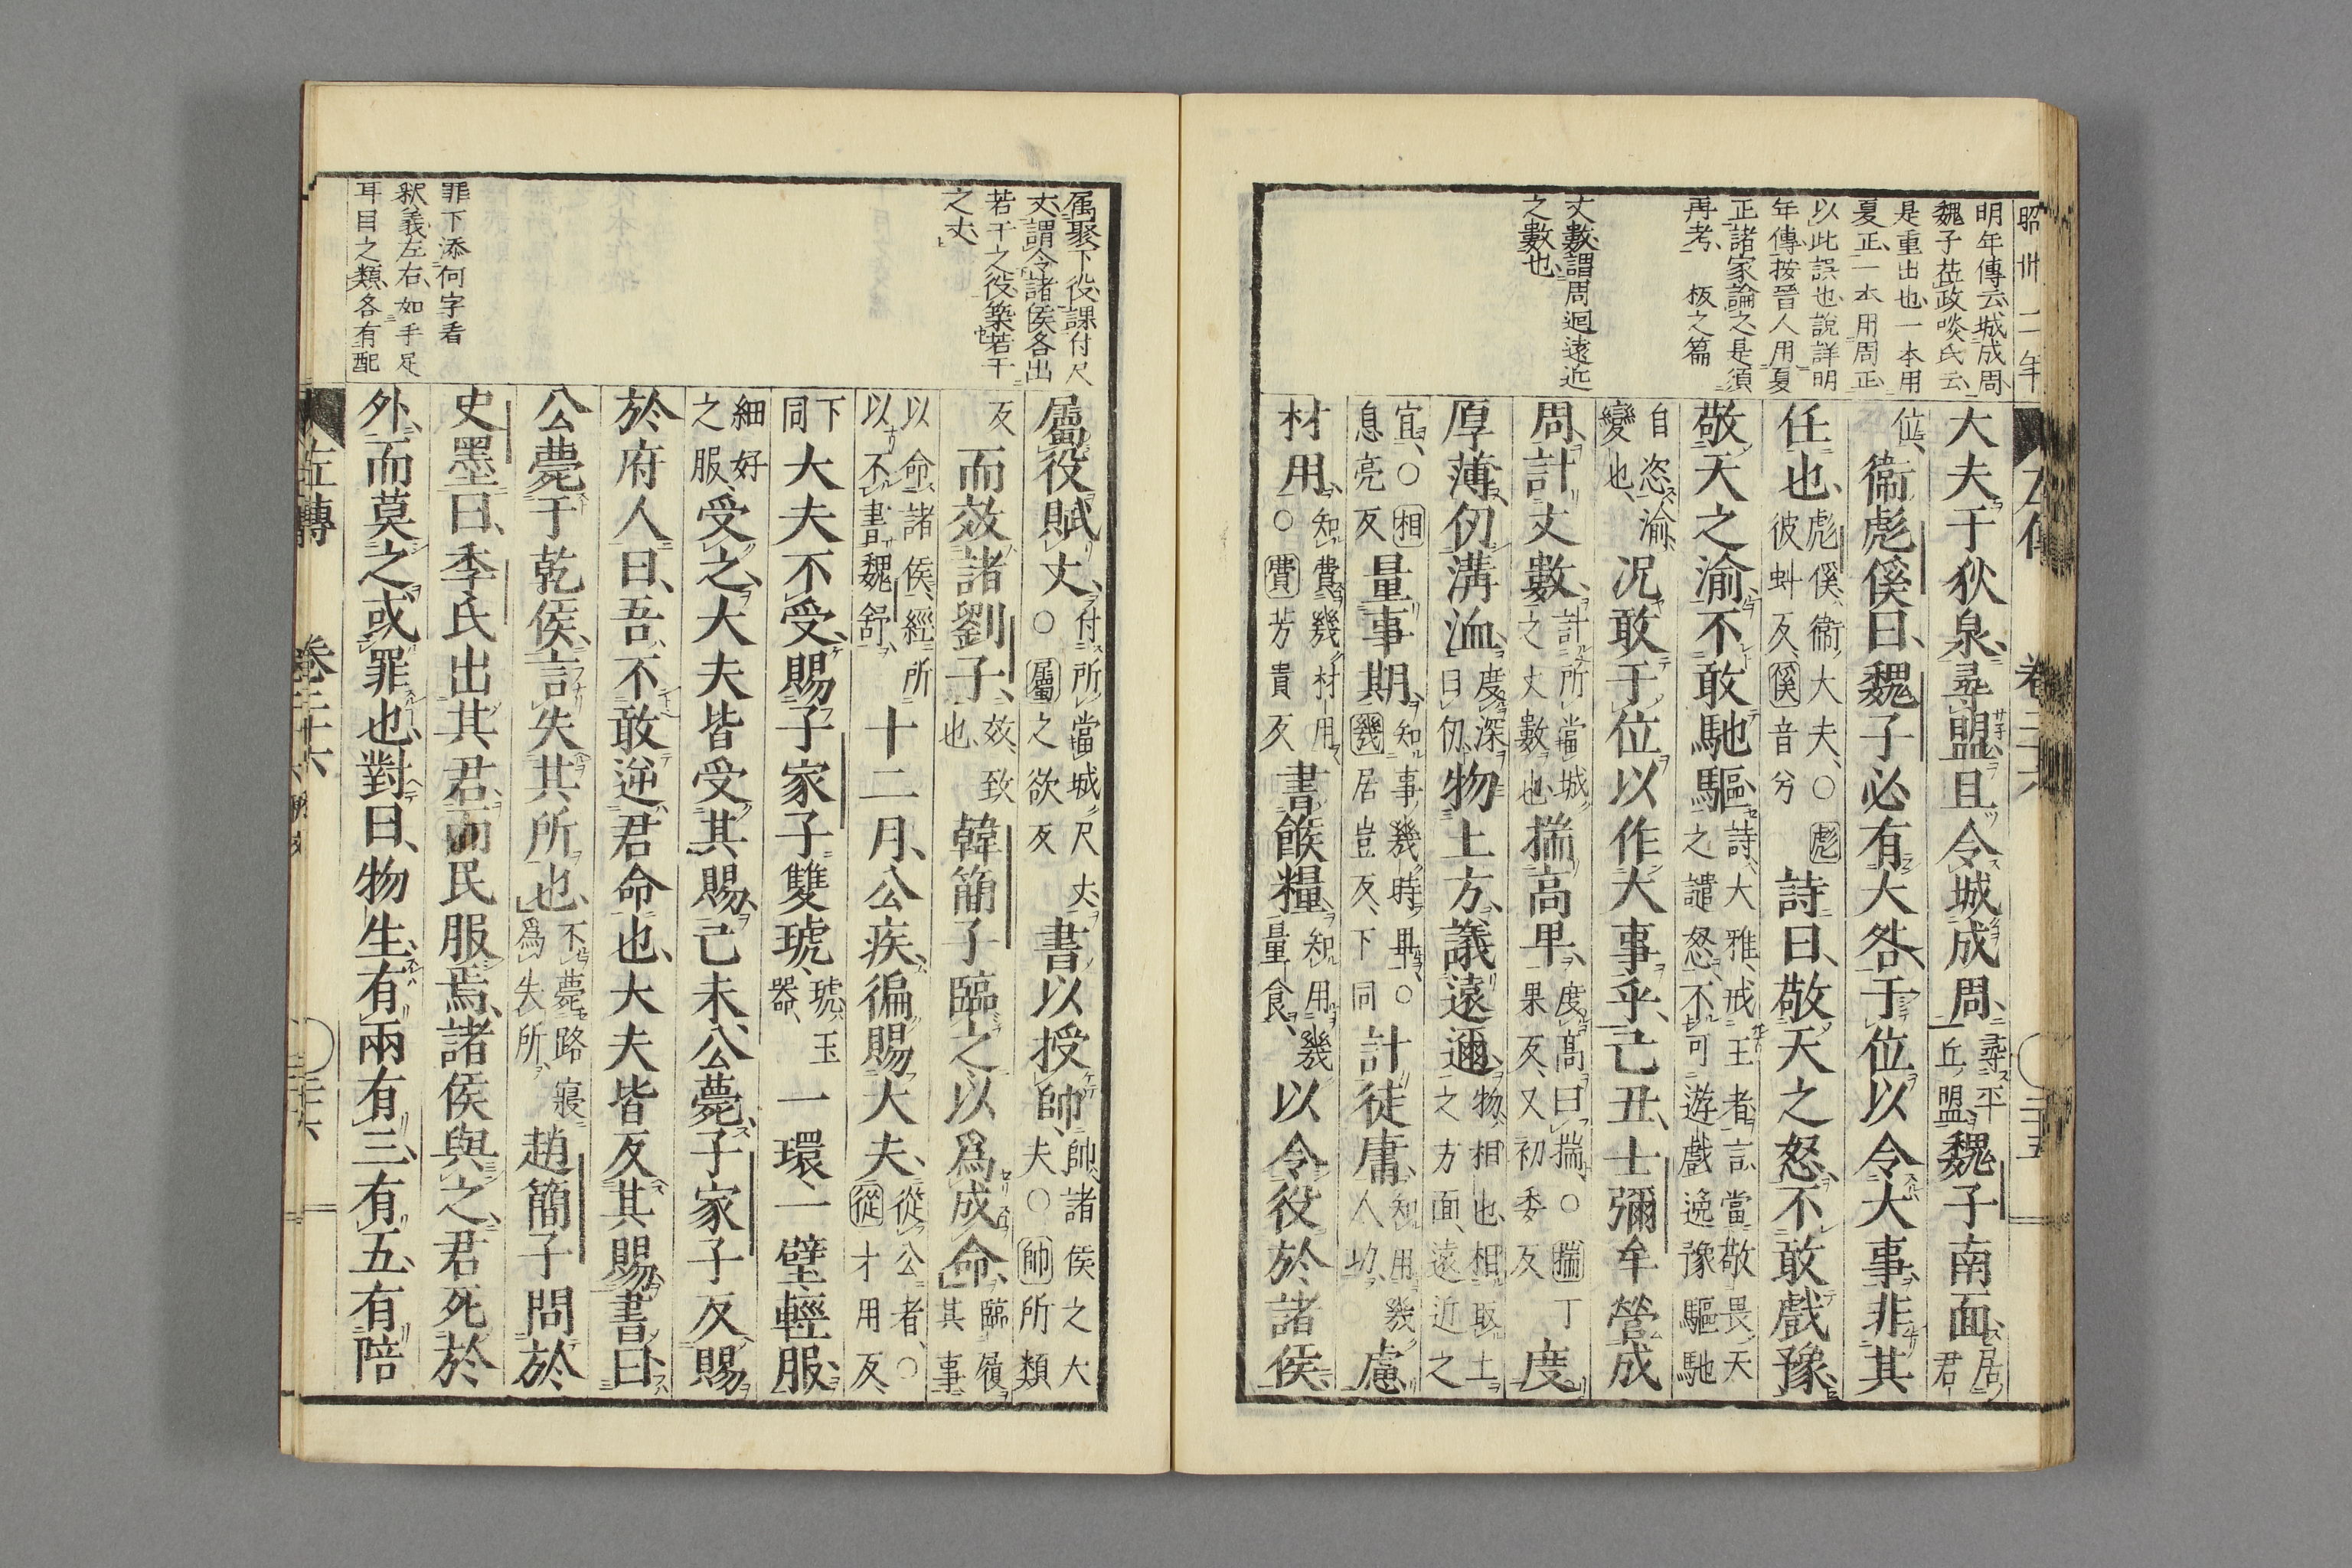 昭卅二年
明年傳云城成周
魏子莅政啖氏云
是重出也一本用
夏正一本用周正
以此誤也說詳明
年傳按晉人用夏
正諸家論之是須
再考、板之篇
丈數謂周迴遠近
之數也
大夫于狄泉、尋盟且令城成周、尋平丘盟、魏子南面、居君
位、衞彪傒曰、魏子必有大咎、于位以令大事、非其
任也、彪傒衞大夫、○彪彼虯反、傒音兮詩曰、敬天之怒、不敢戲豫、
敬天之渝、不敢馳驅、詩大雅、戒王者、言當敬畏天之譴怒、不可遊戲逸豫驅馳
自恣渝、變也、况敢于位以作大事乎、己丑、士彌牟營成
周、計丈數、計所當城之丈數也揣高卑、度髙曰揣、○揣丁果反、又初委反度
厚薄、仞溝洫、度深曰仞、物土方、議遠邇、物相也、相取土之方面、遠近之
宜、○相息亮反量事期、知事幾時畢、○幾居豈反、下同計徒庸、知用幾人功、慮
材用、知費幾材用、○費芳貴反書餱糧、知用幾量食、以令役於諸侯
属聚、下役課付尺
丈謂令諸侯各出
若干之役築若干
之丈
罪下添何字看
釈義左右如手足
耳目之類各有配
屬役賦丈、付所當城尺丈○屬之欲反書以授帥、帥諸侯之大夫○帥所類
反而效諸劉子、效致也、韓簡子臨之、以爲成命、臨履其事
以命諸侯、經所以不書魏舒、十二月、公疾、徧賜大夫、從公者、○從才用反、
下同大夫不受、賜子家子雙琥、琥玉器、一環一璧、輕服、
細好之服、受之、大夫皆受其賜、己未、公薨、子家子反賜
於府人曰、吾不敢逆君命也、大夫皆反其賜、書曰、
公薨于乾侯、言失其所也、不薨路寢爲失所、趙簡子問於
史墨曰、季氏出其君、而民服焉、諸侯與之、君死於
外、而莫之或罪也、對曰、物生有兩、有三、有五、有陪
左傳　卷二十六　三十六